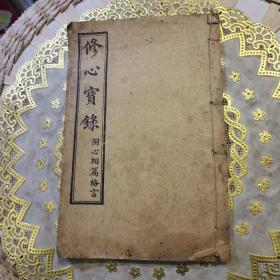 修心寶錄
附心相篇格言